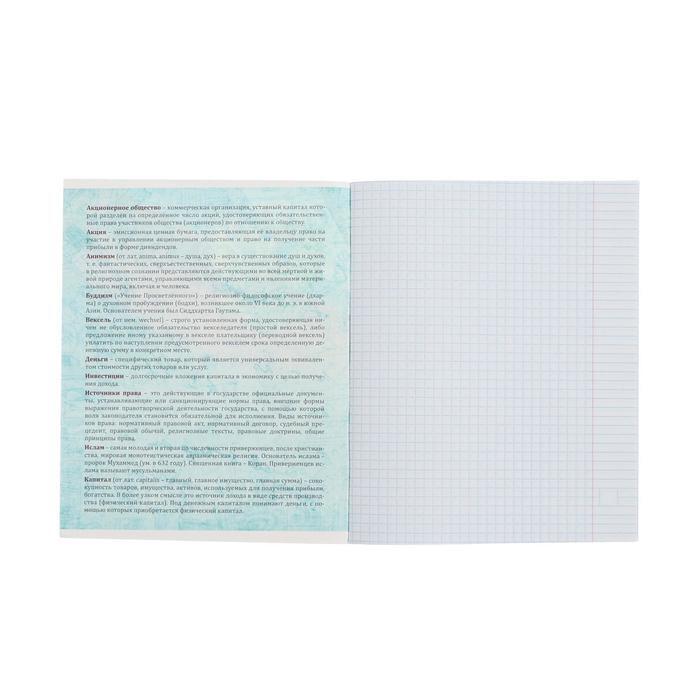 Акционерное общество – коммерческая организация, уставный капитал кото-
рой разделён на определённое число акций, удостоверяющих обязательствен-
ные права участников общества (акционеров) по отношению к обществу.
Акция – эмиссионная ценная бумага, предоставляющая её владельцу право на
участие в управлении акционерным обществом и право на получение части
прибыли в форме дивидендов.
Анимизм (от лат. anima, animus – душа, дух) – вера в существование душ и духов,
т. е. фантастических, сверхъестественных, сверхчувственных образов, которые
в религиозном сознании представляются действующими во всей мёртвой и жи-
вой природе агентами, управляющими всеми предметами и явлениями матери-
ального мира, включая и человека.
Буддизм («Учение Просветлённого») – религиозно-философское учение (дхар-
ма) о духовном пробуждении (бодхи), возникшее около VI века до н. э. в Южной
Азии. Основателем учения был Сиддхартха Гаутама.
Вексель (от нем. wechsel) – строго установленная форма, удостоверяющая ни-
чем не обусловленное обязательство векселедателя (простой вексель), либо
предложение иному указанному в векселе плательщику (переводной вексель)
уплатить по наступлении предусмотренного векселем срока определённую де-
нежную сумму в конкретном месте.
Деньги – специфический товар, который является универсальным эквивален-
том стоимости других товаров или услуг.
Инвестиции – долгосрочные вложения капитала в экономику с целью получе-
ния дохода.
Источники права – это действующие в государстве официальные докумен-
ты, устанавливающие или санкционирующие нормы права, внешние формы
выражения правотворческой деятельности государства, с помощью которой
воля законодателя становится обязательной для исполнения. Виды источни-
ков права: нормативный правовой акт, нормативный договор, судебный пре-
цедент, правовой обычай, религиозные тексты, правовые доктрины, общие
принципы права.
Ислам – самая молодая и вторая по численности приверженцев, после христиан-
ства, мировая монотеистическая авраамическая религия. Основатель ислама –
пророк Мухаммед (ум. в 632 году). Священная книга – Коран. Приверженцев ис-
лама называют мусульманами.
Капитал (от лат. capitalis – главный, главное имущество, главная сумма) – сово-
купность товаров, имущества, активов, используемых для получения прибыли,
богатства. В более узком смысле это источник дохода в виде средств производ-
ства (физический капитал). Под денежным капиталом понимают деньги, с по-
мощью которых приобретается физический капитал.